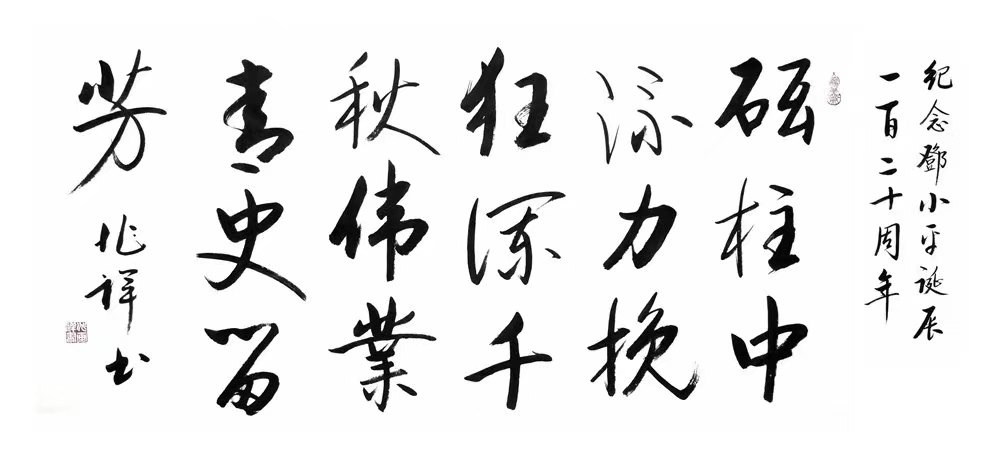 纪念鄧小平诞辰
一百二十周年
砥柱中
流力挽
狂澜千
秋伟業
青史留
芳
兆祥书